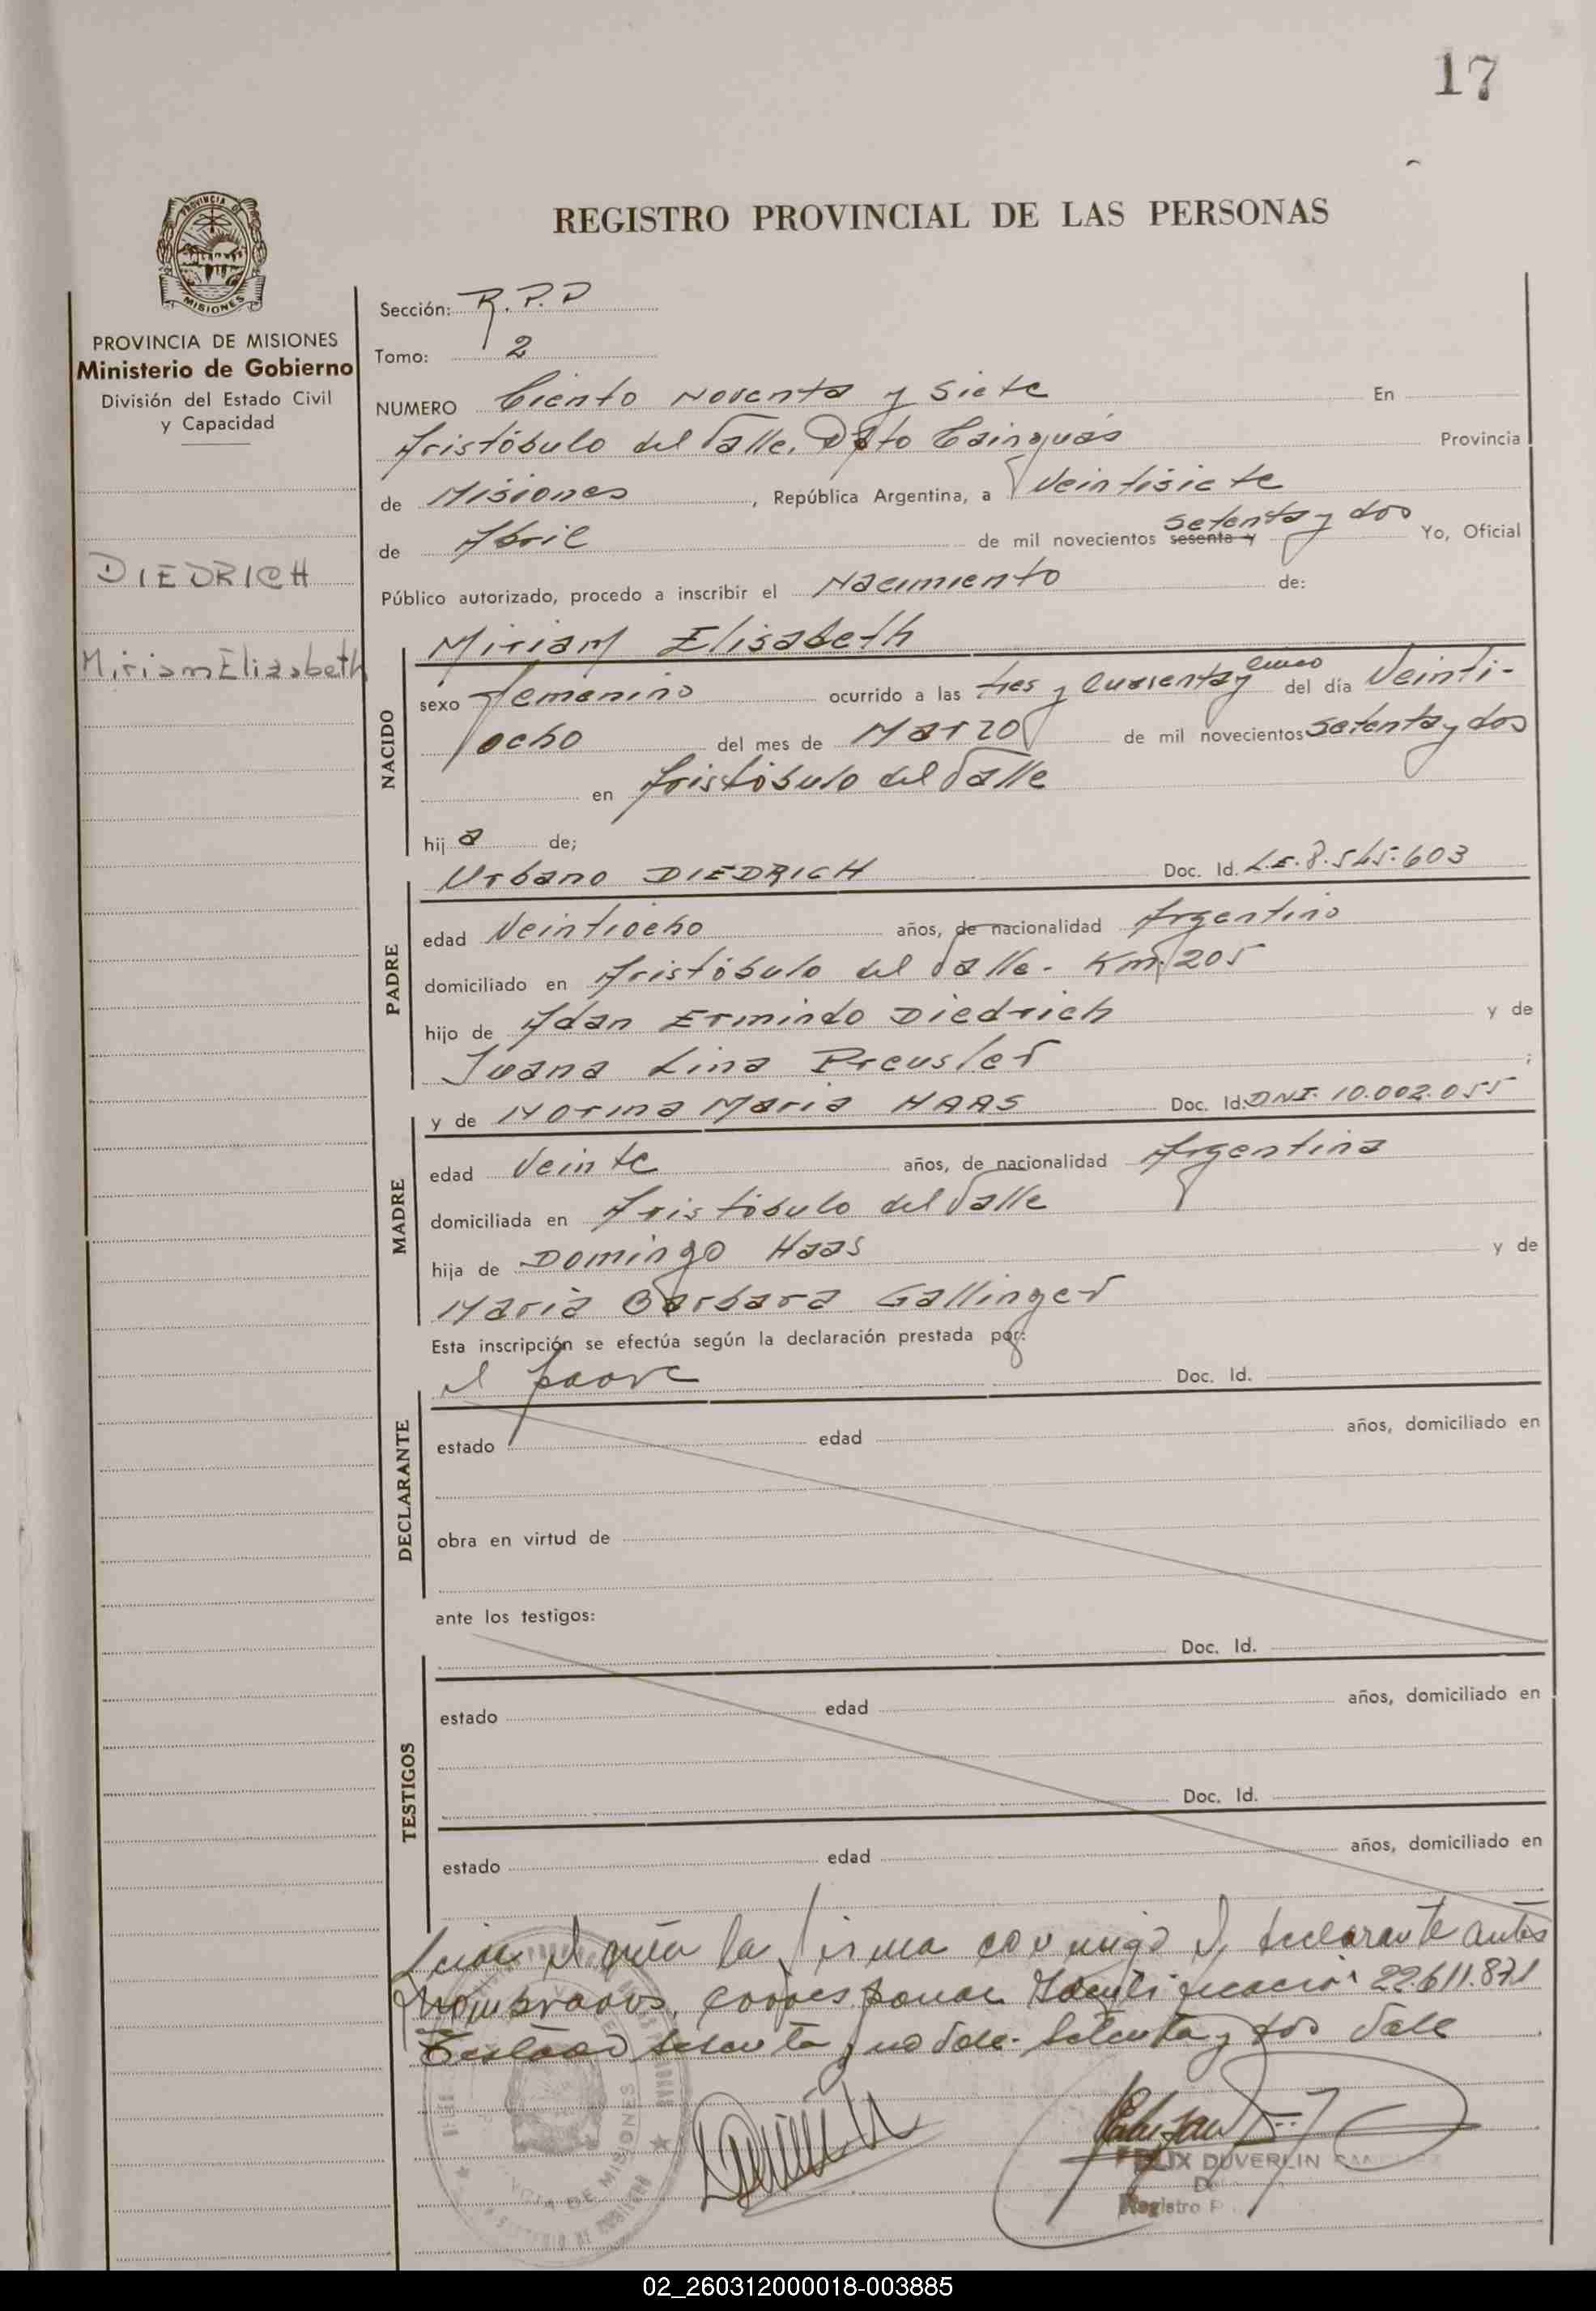 17
REGISTRO PROVINCIAL DE LAS PERSONAS
PROVINCIA DE MISIONES
Ministerio de Gobierno
División del Estado Civil
y Capacidad
DIEDRICH
Miriam Elizabeth
Sección: R.P.P
Tomo: 2
NUMERO Ciento Noventa y Siete En
Aristóbulo del Valle. Dpto Cainguás Provincia
de Misiones, República Argentina, a Veintisiete
de Abril de mil novecientos sesenta y setenta y dos Yo, Oficial
Público autorizado, procedo a inscribir el Nacimiento de:
NACIDO
Miriam Elisabeth
sexo femenino ocurrido a las tres y cuarenta y cinco del día Veinti-
ocho del mes de Marzo de mil novecientos setenta y dos
en Aristóbulo del Valle
hija de;
PADRE
Urbano DIEDRICH Doc. Id. L.E. 8.545.603
edad Veintiocho años, de nacionalidad Argentino
domiciliado en Aristóbulo del Valle - Km. 205
hijo de Adan Ermindo Diedrich y de
Juana Lina Preusler ;
MADRE
y de Norma Maria HAAS Doc. Id. DNI. 10.002.055
edad Veinte años, de nacionalidad Argentina
domiciliada en Aristóbulo del Valle
hija de Domingo Haas y de
Maria Barbara Gallinger
Esta inscripción se efectúa según la declaración prestada por:
DECLARANTE
el padre Doc. Id.
estado edad años, domiciliado en
obra en virtud de
ante los testigos:
TESTIGOS
Doc. Id.
estado edad años, domiciliado en
Doc. Id.
estado edad años, domiciliado en
Leída el acta la firma conmigo el declarante antes
nombrados, corresponde Identificación 22.611.871
Testado sesenta y no vale. Setenta y dos vale
FELIX DUVERLIN
Registro P
MISIONES
02_260312000018-003885